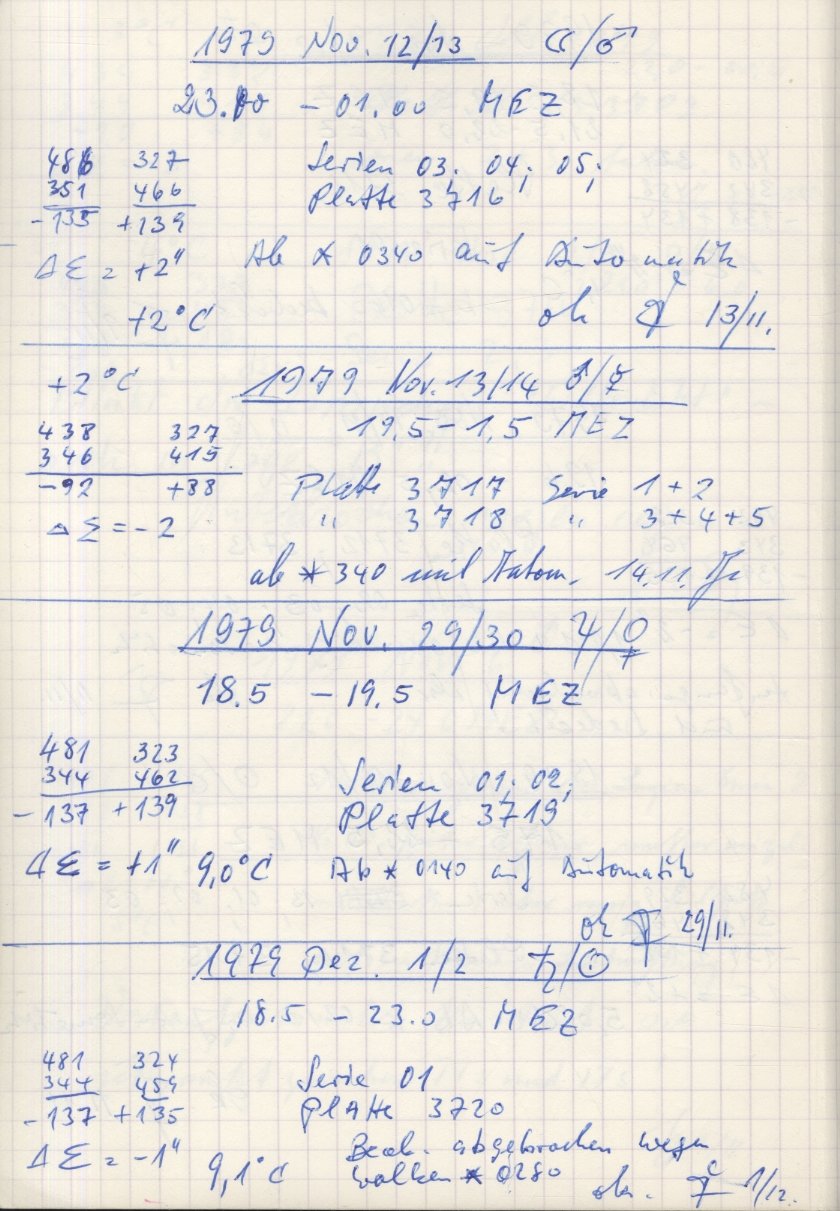 1979 Nov. 12/13 ☾/♂
23.00 – 01.00 MEZ
486 327 Serien 03; 04; 05;
351 466 Platte 3716
-135 +139
ΔΣ = +2" Ab * 0340 auf Automatik
+2°C ok 13/11.
+2°C 1979 Nov. 13/14 ♂/☿
438 327 19.5 – 1.5 MEZ
346 415
-92 +88 Platte 3717 Serie 1+2
ΔΣ = -2 " 3718 " 3+4+5
ab * 340 mit Autom. 14.11.
1979 Nov. 29/30 ♃/♀
18.5 – 19.5 MEZ
481 323
344 462 Serien 01; 02;
-137 +139 Platte 3719
ΔΣ = +1" 9,0°C Ab * 0140 auf Automatik
ok 29/11.
1979 Dez. 1/2 ♄/☉
18.5 – 23.0 MEZ
481 324 Serie 01
344 459 Platte 3720
-137 +135
ΔΣ = -1" 9,1°C Beob. abgebrochen wegen
Wolken * 0280 ok. 1/12.